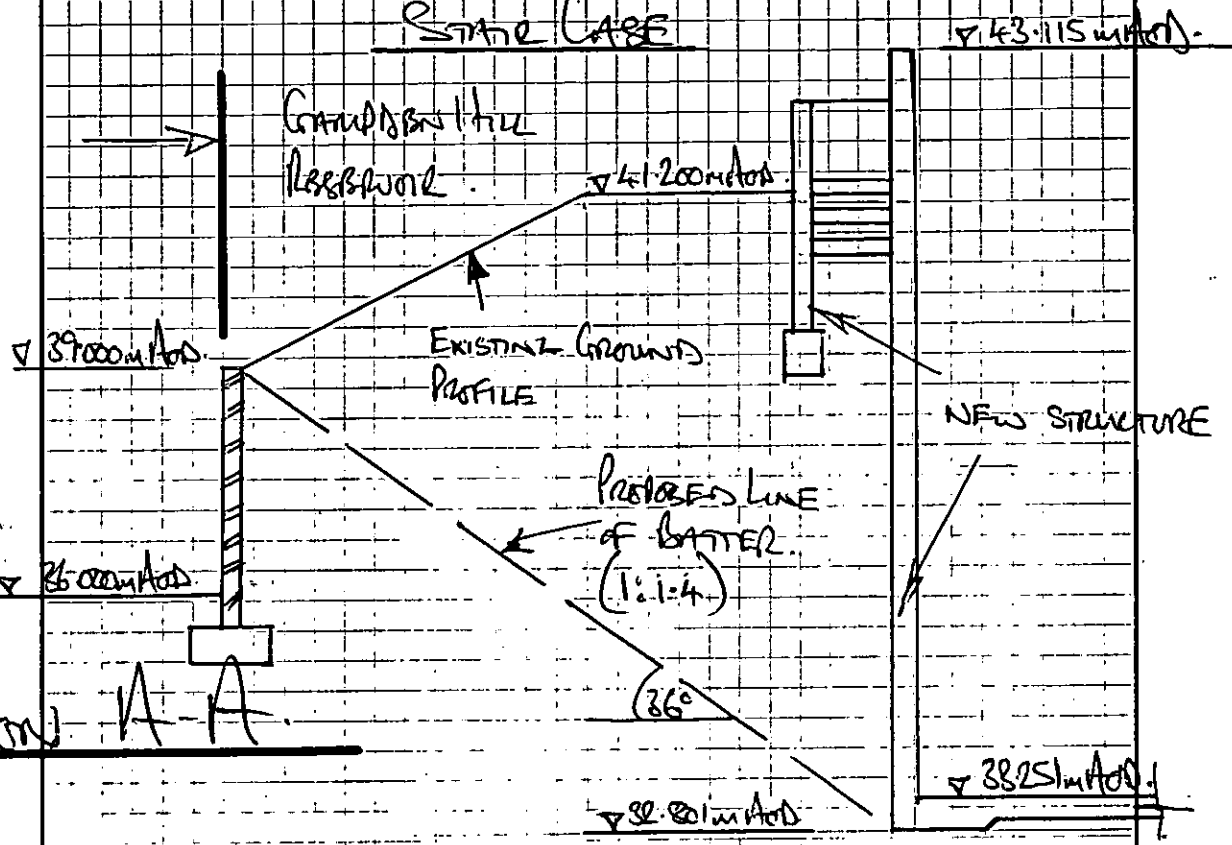 STAIR CASE
43.115mAOD.
CAMPDEN HILL
RESERVOIR.
41.200mAOD.
39.000mAOD.
EXISTING GROUND
PROFILE
NEW STRUCTURE
PROPOSED LINE
OF BATTER.
(1:1.4)
36.000mAOD.
36°
A-A.
38.251mAOD.
32.801mAOD